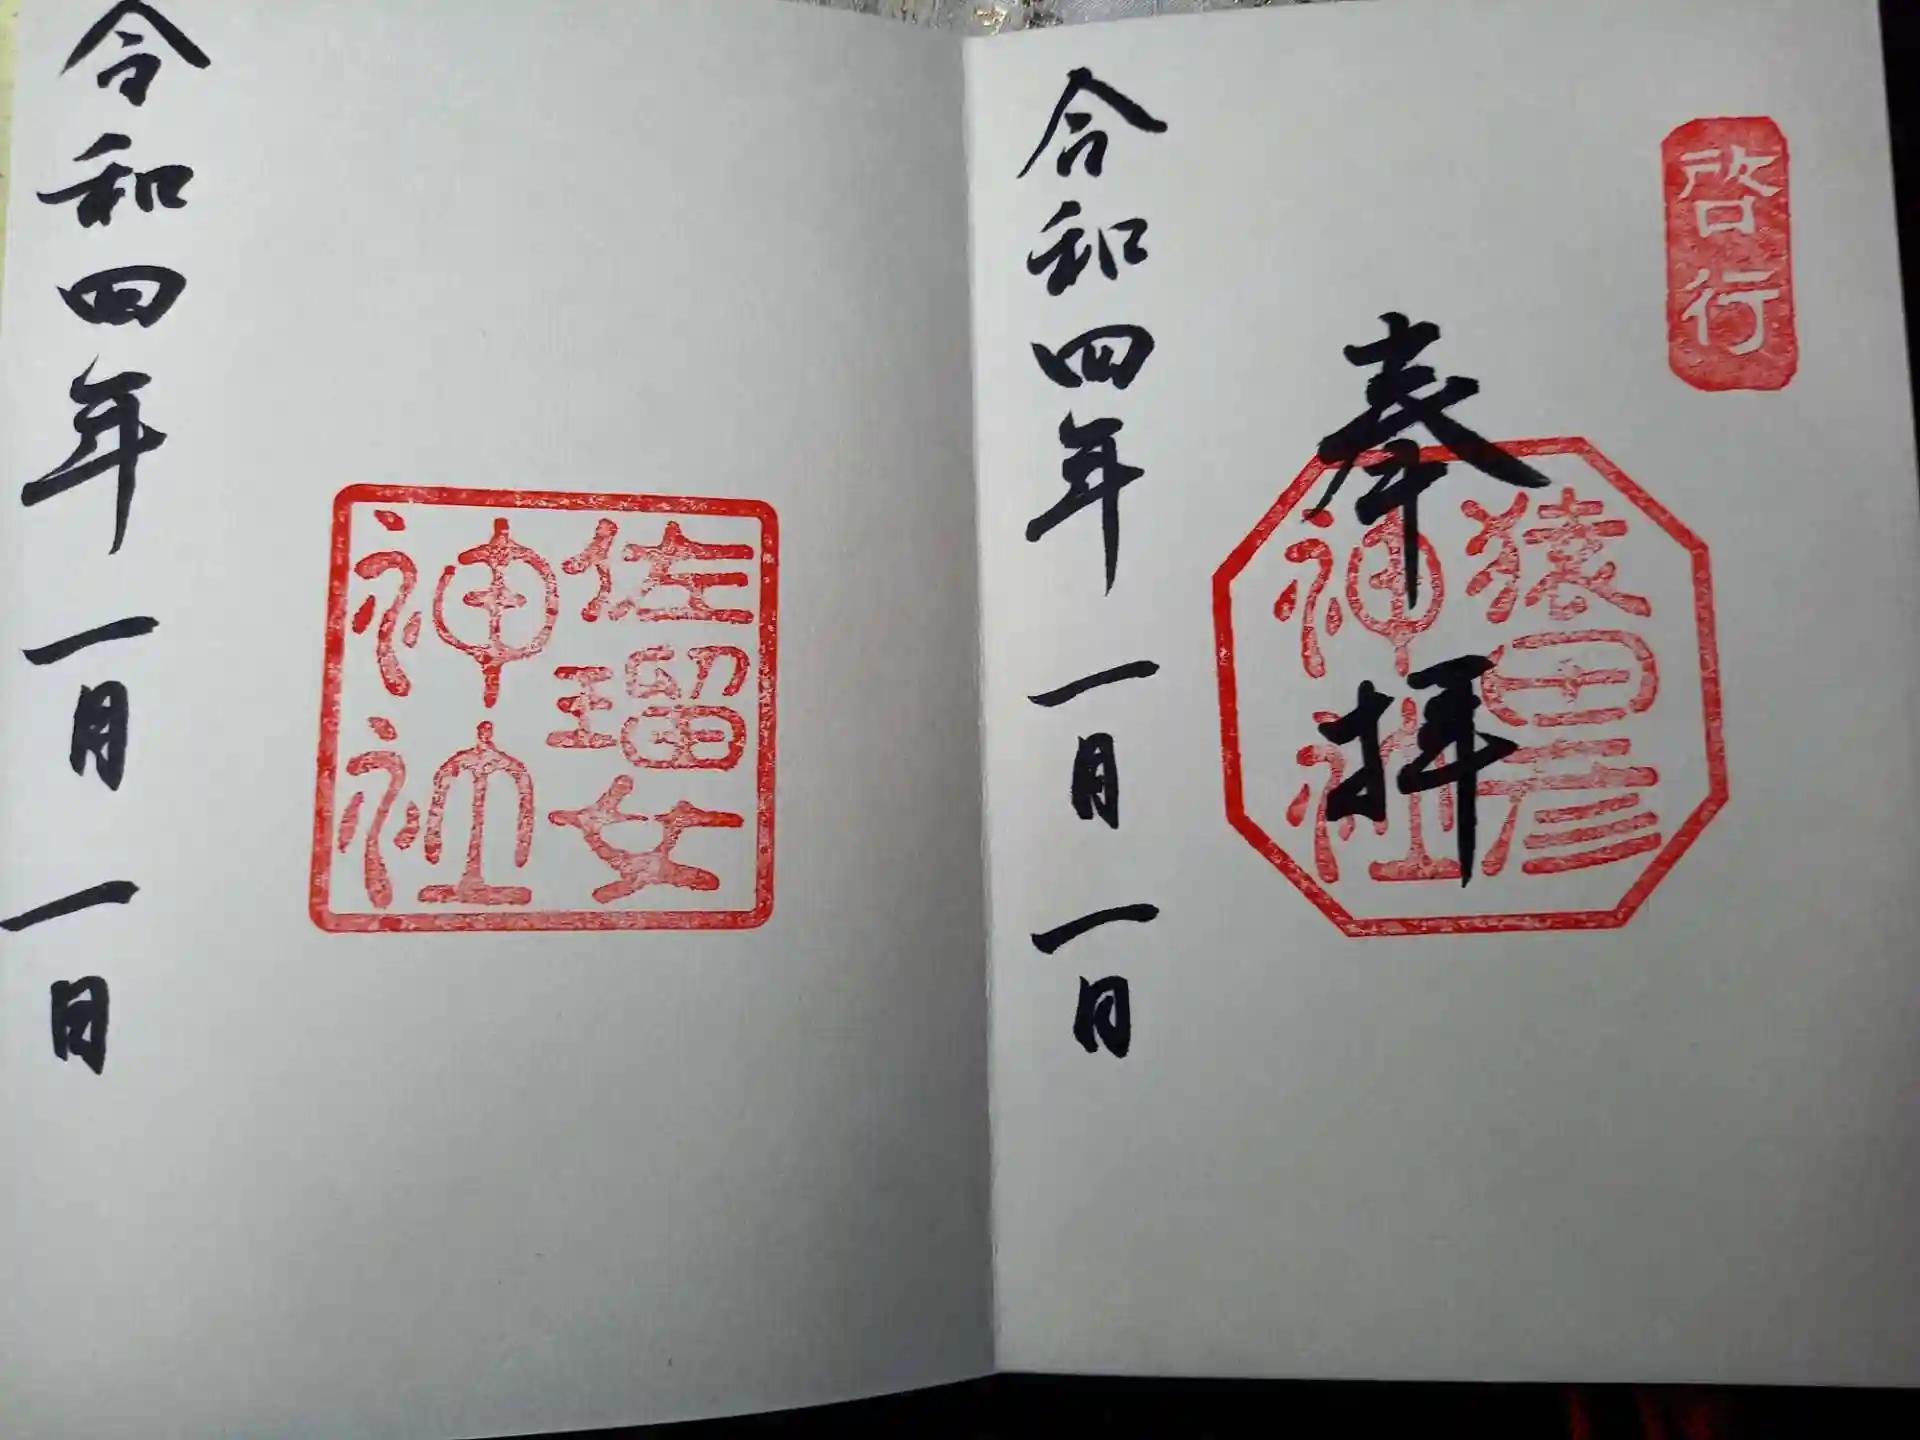 啓行
奉拝
猿田彦
神社
令和四年一月一日
佐瑠女
神社
令和四年一月一日